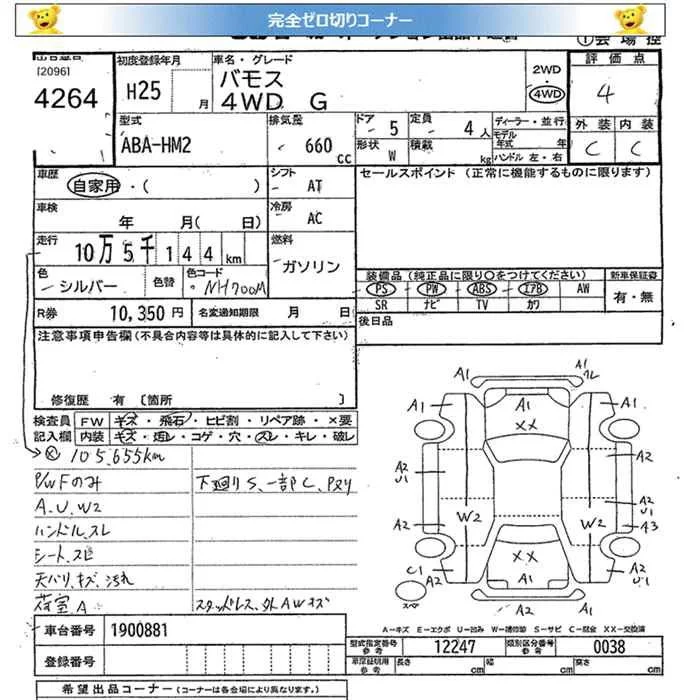 完全ゼロ切りコーナー
①会場控
[2096]
4264
初度登録年月
H25 月
車名・グレード
バモス
4WD G
2WD
4WD
評価点
4
型式
ABA-HM2
排気量
660 cc
ドア 5
定員 4 人
形状 W
積載 kg
ディーラー・並行
モデル年式 年
ハンドル 左・右
外装 内装
C C
車歴
自家用・( )
シフト
AT
セールスポイント (正常に機能するものに限ります)
車検
年 月( 日)
冷房
AC
走行
10万5千144km
燃料
ガソリン
色
シルバー
色替
色コード
NH700M
装備品(純正品に限り○をつけてください)
新車保証書
PS PW ABS エアB AW
SR ナビ TV カワ
有・無
R券 10,350円
名変通知期限 月 日
後日品
注意事項申告欄(不具合内容等は具体的に記入して下さい)
修復歴 有 [箇所 ]
検査員記入欄
FW キズ・飛石・ヒビ割・リペア跡・×要
内装 キズ・汚レ・コゲ・穴・スレ・キレ・破レ
105,655km
P/WFのみ
下廻りS、一部C、Pヌリ
A.U.W2
ハンドル.スレ
シート.スレ
天バリ.キズ.汚れ
荷室A
スタッドレス.外AWキズ
A1
A1
A1
A1
A1
XX
A2
A2
U1
A2
U1
A2
W2
W2
A3
XX
C1
A2
A1
A2
U1
A1
スペア
A-キズ E-エクボ U-凹み W-補修跡 S-サビ C-腐食 XX-交換済
車台番号 1900881
登録番号
型式指定番号 参考 12247
類別区分番号 参考 0038
車庫証明用 参考 長さ cm 幅 cm 高さ cm
希望出品コーナー (コーナーは各会場により異なります。)